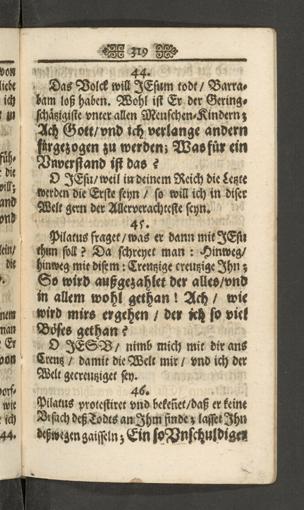 319
44.
Das Volck will JEsum todt / Barra-
bam loß haben. Wohl ist Er der Gering-
schätzigiste vnter allen Menschen-Kindern;
Ach Gott / vnd ich verlange andern
fürgezogen zu werden; Was für ein
Vnverstand ist das?
O JEsu / weil in deinem Reich die Letzte
werden die Erste seyn / so will ich in diser
Welt gern der Allerverachteste seyn.
45.
Pilatus fraget / was er dann mit JEsu
thun soll? Da schreyet man: Hinweg /
hinweg mit disem: Creutzige creutzige Ihn;
So wird außgezahlet der alles / vnd
in allem wohl gethan! Ach / wie
wird mirs ergehen / der ich so viel
Böses gethan?
O JESV / nimb mich mit dir ans
Creutz / damit die Welt mir / vnd ich der
Welt gecreutziget sey.
46.
Pilatus protestiret vnd bekeñet / daß er keine
Vrsach deß Todts an Ihm finde; lasset Ihn
deßwegen gaisseln; Ein so Vnschuldiger